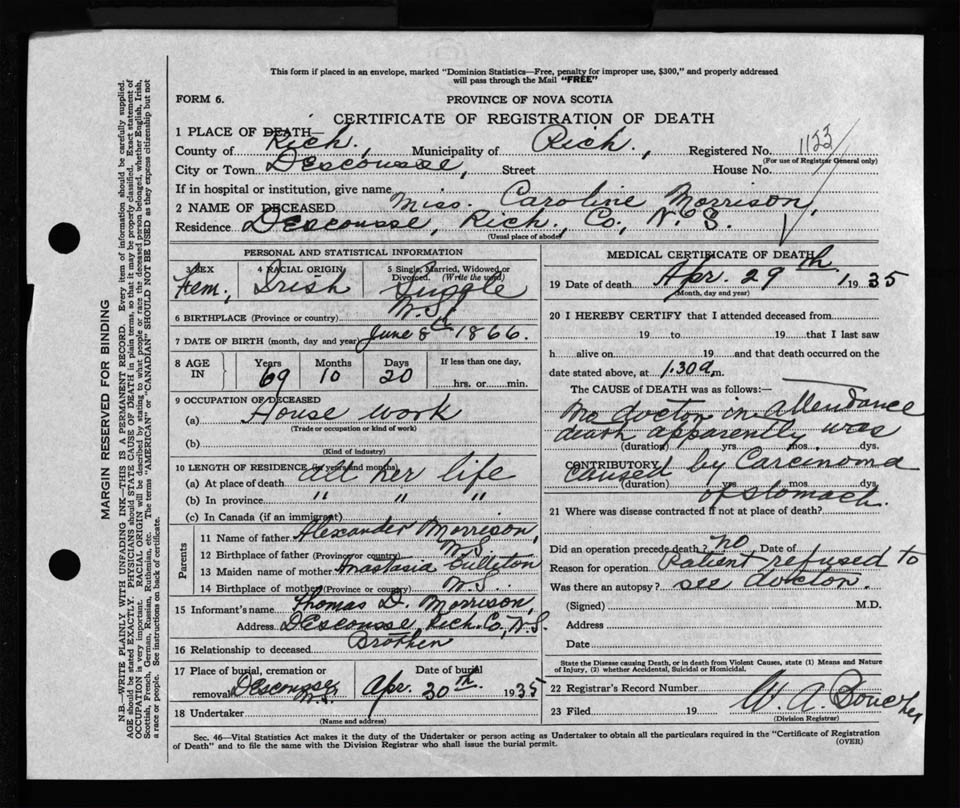 This form if placed in an envelope, marked "Dominion Statistics—Free, penalty for improper use, $300," and properly addressed
will pass through the Mail "FREE"
FORM 6.
PROVINCE OF NOVA SCOTIA
CERTIFICATE OF REGISTRATION OF DEATH
1 PLACE OF DEATH—
County of Rich., Municipality of Rich., Registered No. 1123
(For use of Registrar General only)
City or Town Descousse, Street House No.
If in hospital or institution, give name
2 NAME OF DECEASED Miss. Caroline Morrison,
Residence Descousse, Rich. Co, N.S.
(Usual place of abode)
PERSONAL AND STATISTICAL INFORMATION
3 SEX Fem.,
4 RACIAL ORIGIN Irish
5 Single, Married, Widowed or Divorced. (Write the word) Single
6 BIRTHPLACE (Province or country) N.S.
7 DATE OF BIRTH (month, day and year) June 8th 1866.
8 AGE IN
Years 69
Months 10
Days 20
If less than one day,
hrs. or min.
9 OCCUPATION OF DECEASED
(a) House work
(Trade or occupation or kind of work)
(b)
(Kind of industry)
10 LENGTH OF RESIDENCE (in years and months)
(a) At place of death all her life
(b) In province " " "
(c) In Canada (if an immigrant)
Parents
11 Name of father Alexander Morrison,
12 Birthplace of father (Province or country) N.S.
13 Maiden name of mother Anastasia
14 Birthplace of mother (Province or country) N.S.
15 Informant's name Thomas D. Morrison,
Address Descousse, Rich. Co, N.S.
16 Relationship to deceased Brother
17 Place of burial, cremation or removal Descousse N.S.
Date of burial Apr. 30th. 1935
18 Undertaker
(Name and address)
MEDICAL CERTIFICATE OF DEATH
19 Date of death Apr 29th 1935
(Month, day and year)
20 I HEREBY CERTIFY that I attended deceased from
19 to 19 that I last saw
h alive on 19 and that death occurred on
date stated above, at 1.30 a.m.
The CAUSE of DEATH was as follows:
No doctor in attendance
death apparently was
(duration) yrs. mos. dys.
CONTRIBUTORY
caused by Carcinoma
(duration) yrs. mos. dys.
of stomach.
21 Where was disease contracted if not at place of death?
Did an operation precede death? no Date of
Reason for operation Patient refused to
Was there an autopsy? see doctor.
(Signed) M.D.
Address
Date
State the Disease causing Death, or in Death from Violent Causes, state (1) Means and Nature
of Injury, (2) whether Accidental, Suicidal or Homicidal.
22 Registrar's Record Number
23 Filed 19 W. A. Boucher
(Division Registrar)
Sec. 46—Vital Statistics Act makes it the duty of the Undertaker or person acting as Undertaker to obtain all the particulars required in the "Certificate of Registration
of Death" and to file the same with the Division Registrar who shall issue the burial permit.
(OVER)
MARGIN RESERVED FOR BINDING
N.B.—WRITE PLAINLY WITH UNFADING INK—THIS IS A PERMANENT RECORD. Every item of information should be carefully supplied.
AGE should be stated EXACTLY. PHYSICIANS should STATE CAUSE OF DEATH in plain terms, so that it may be properly classified. Exact statement of
OCCUPATION is very important. RACIAL ORIGIN will be described by stating to what people or race the deceased person belonged, whether English, Irish,
Scottish, French, German, Russian, Ruthenian, etc. The terms "AMERICAN" or "CANADIAN" SHOULD NOT BE USED as they express citizenship but not
a race or people. See instructions on back of certificate.